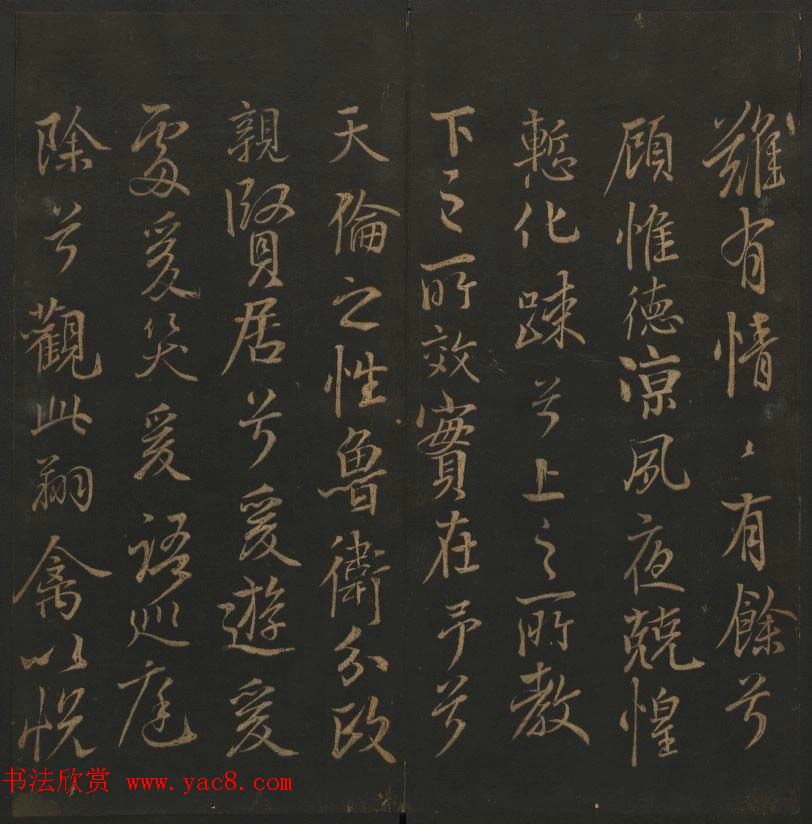 難有情〻有餘兮
顧惟德涼夙夜兢惶
慙化踈兮上之所教
下之所效實在予兮
天倫之性魯衛分政
親賢居兮爰遊爰
處爰笑爰語巡庭
除兮觀此翔禽以悅
书法欣赏 www.yac8.com